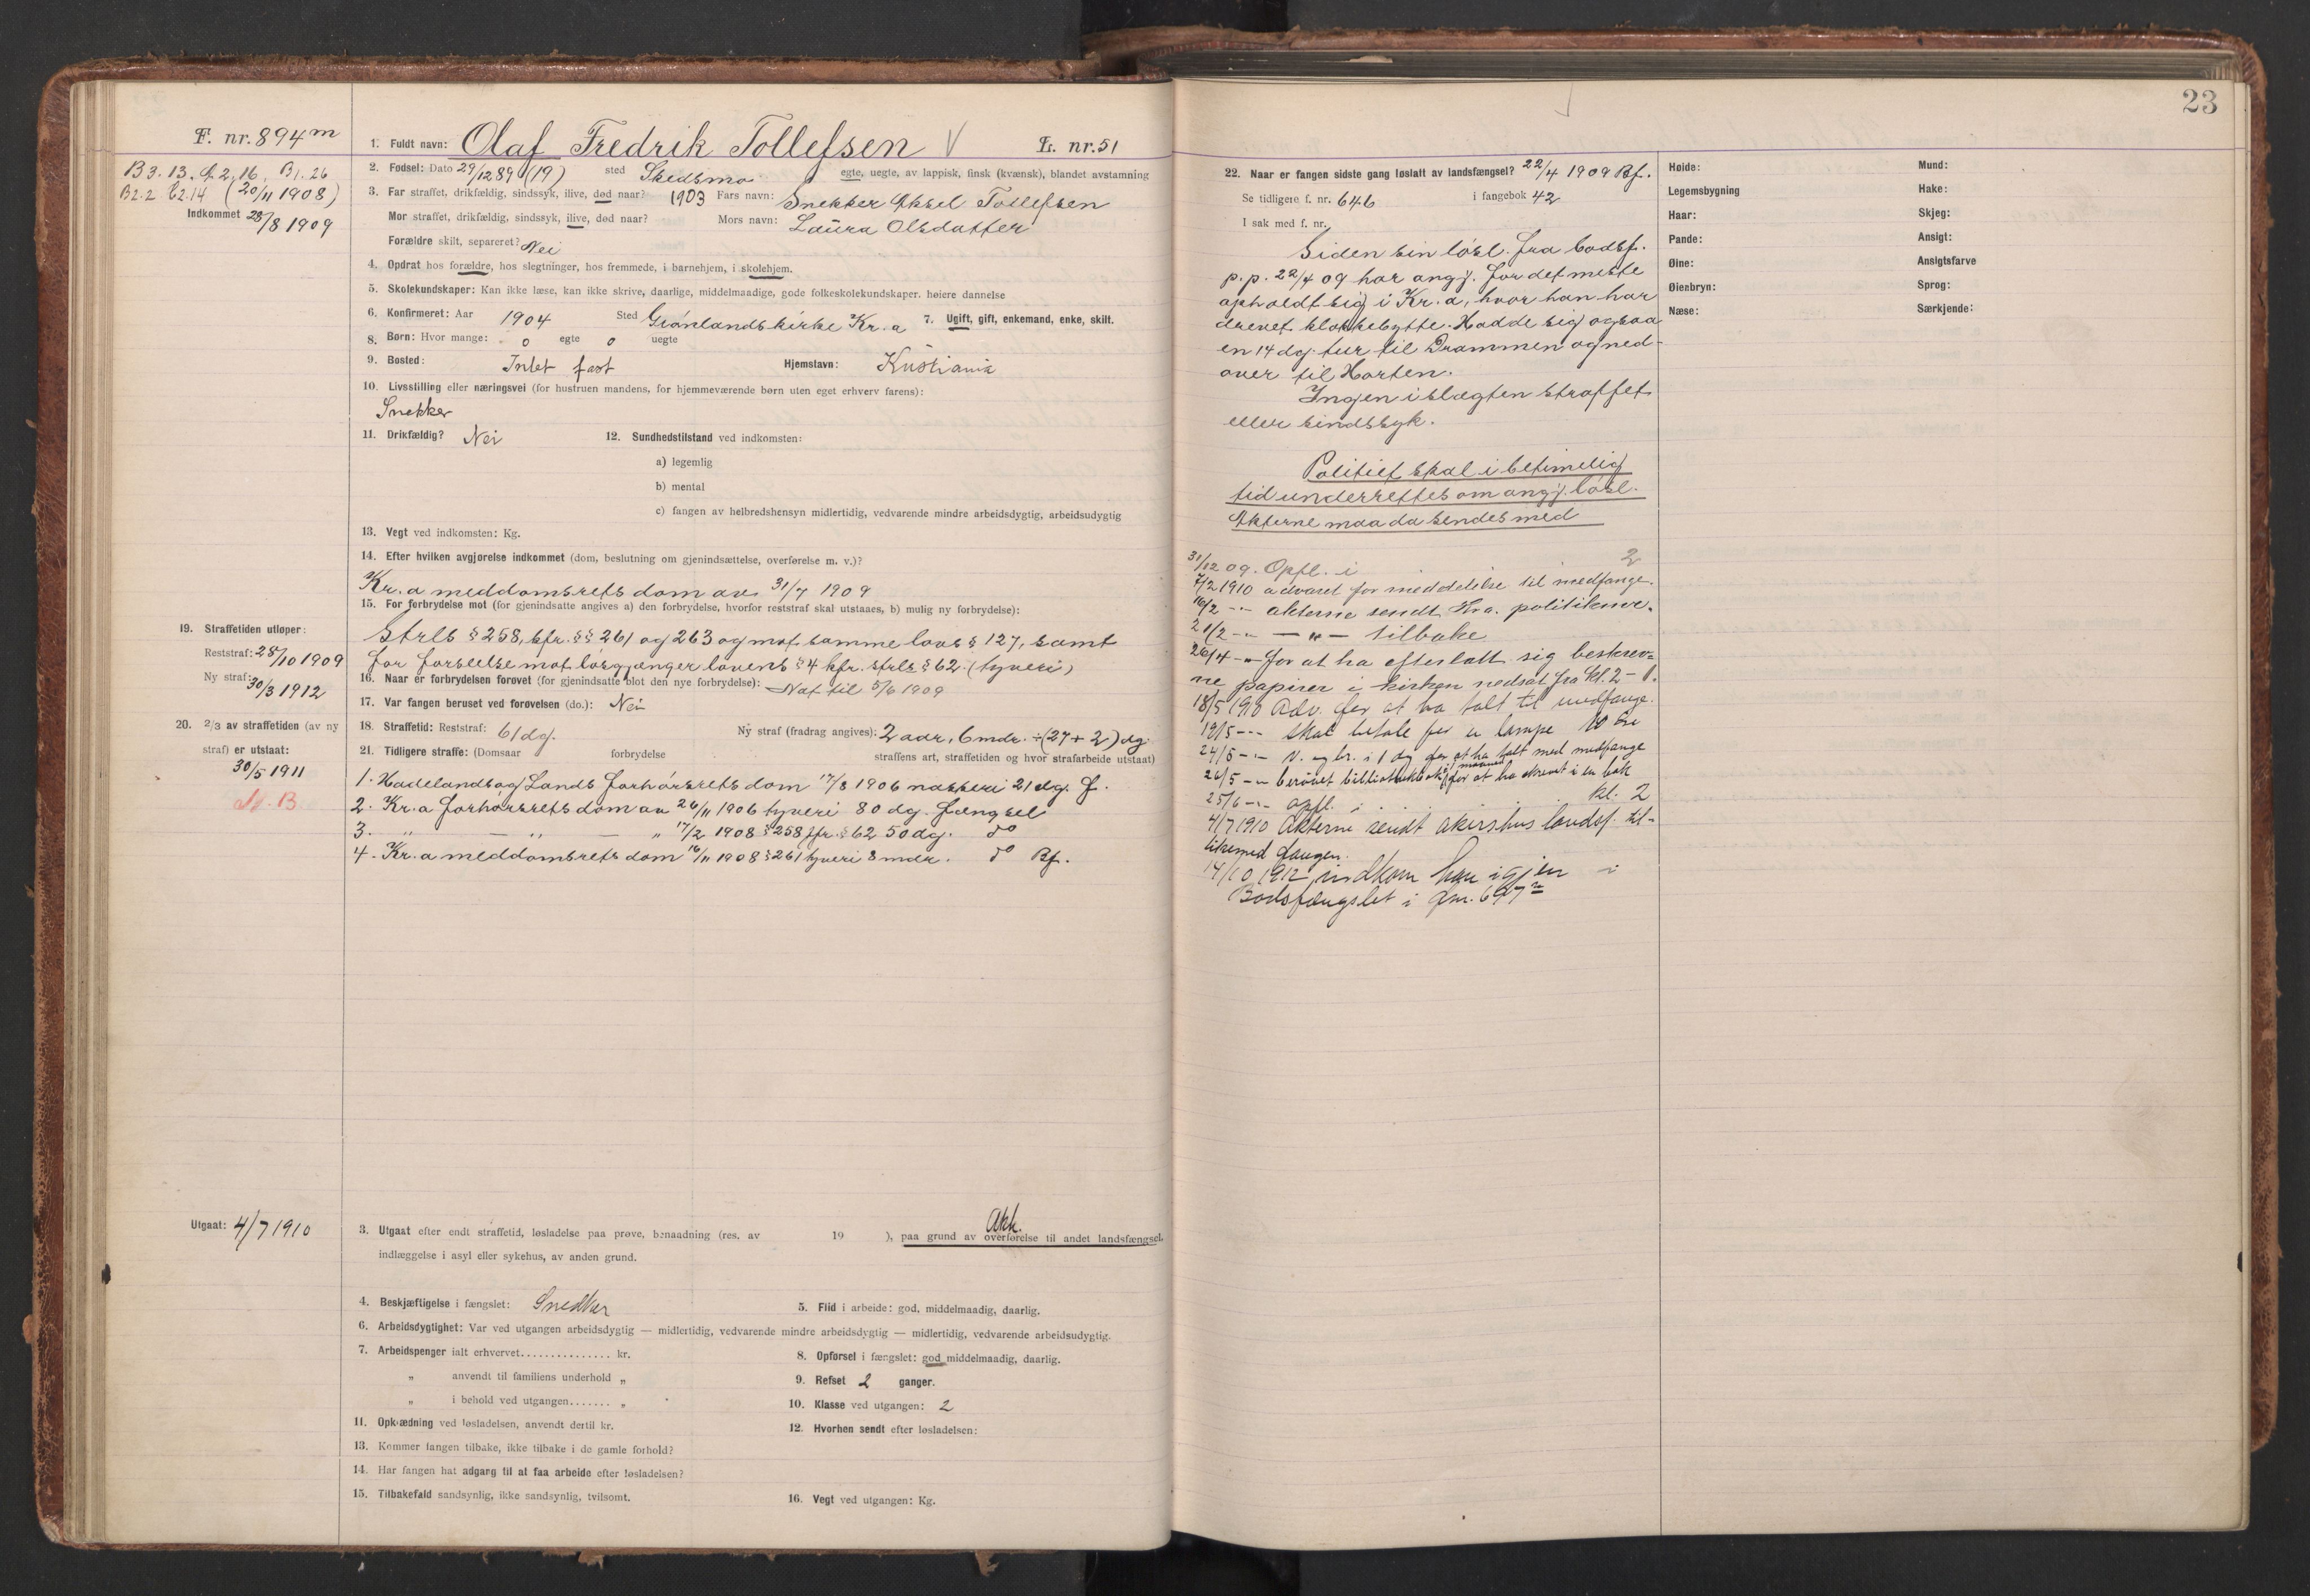 F. nr. 894 m
B 3. 13. A. 2. 16. B 1. 26
B2. 2 C2. 14 (20/11 1908)
Indkommet 28/8 1909
1. Fuldt navn: Olaf Fredrik Tollefsen V L. nr. 51
2. Fødsel: Dato 29/12 89 (19) sted Skedsmo egte, uegte, av lappisk, finsk (kvænsk), blandet avstamning
3. Far straffet, drikfældig, sindssyk, ilive, død naar? 1903 Fars navn: Snekker Aksel Tollefsen
Mor straffet, drikfældig, sindssyk, ilive, død naar? Mors navn: Laura Olsdatter
Forældre skilt, separeret? Nei
4. Opdrat hos forældre, hos slegtninger, hos fremmede, i barnehjem, i skolehjem.
5. Skolekundskaper: Kan ikke læse, kan ikke skrive, daarlige, middelmaadige, gode folkeskolekundskaper. høiere dannelse
6. Konfirmeret: Aar 1904 Sted Grønlands kirke Kr.a 7. Ugift, gift, enkemand, enke, skilt.
8. Børn: Hvor mange: 0 egte 0 uegte
9. Bosted: Intet fast Hjemstavn: Kristiania
10. Livsstilling eller næringsvei (for hustruen mandens, for hjemmeværende børn uten eget erhverv farens):
Snekker
11. Drikfældig? Nei 12. Sundhedstilstand ved indkomsten:
a) legemlig
b) mental
c) fangen av helbredshensyn midlertidig, vedvarende mindre arbeidsdygtig, arbeidsudygtig
13. Vegt ved indkomsten: Kg.
14. Efter hvilken avgjørelse indkommet (dom, beslutning om gjenindsættelse, overførelse m. v.)?
Kr.a meddomsrets dom av 31/7 1909
15. For forbrydelse mot (for gjenindsatte angives a) den forbrydelse, hvorfor reststraf skal utstaaes, b) mulig ny forbrydelse):
Strls § 258, kfr. §§ 261 og 263 og mot samme lovs § 127, samt
for forseelse mot løsgjænger lovens § 4 kfr. strls § 62. (tyveri)
16. Naar er forbrydelsen forøvet (for gjenindsatte blot den nye forbrydelse): Nat til 5/6 1909
17. Var fangen beruset ved forøvelsen (do.): Nei
18. Straffetid: Reststraf: 61 dg. Ny straf (fradrag angives): 2 aar, 6 mdr. ÷ (27 + 2) dg.
21. Tidligere straffe: (Domsaar forbrydelse straffens art, straffetiden og hvor strafarbeide utstaat)
1. Hadeland og Lands forhørsrets dom 17/8 1906 naskeri 21 dg. f.
2. Kr.a forhørsrets dom av 26/11 1906 tyveri 80 dg. fængsel
3. " — " — " 17/2 1908 § 258 jfr. § 62 50 dg. do
4. Kr.a meddomsrets dom 16/11 1908 § 261 tyveri 8 mdr. do Bf.
19. Straffetiden utløper:
Reststraf: 28/10 1909
Ny straf: 30/3 1912
20. 2/3 av straffetiden (av ny
straf) er utstaat:
30/5 1911
Utgaat: 4/7 1910
Akh.
3. Utgaat efter endt straffetid, løsladelse paa prøve, benaadning (res. av 19 ), paa grund av overførelse til andet landsfængsel,
indlæggelse i asyl eller sykehus, av anden grund.
4. Beskjæftigelse i fængslet: Snedker 5. Flid i arbeide: god, middelmaadig, daarlig.
6. Arbeidsdygtighet: Var ved utgangen arbeidsdygtig — midlertidig, vedvarende mindre arbeidsdygtig — midlertidig, vedvarende arbeidsudygtig.
7. Arbeidspenger ialt erhvervet............... kr. 8. Opførsel i fængslet: god middelmaadig, daarlig.
" anvendt til familiens underhold " 9. Refset 2 ganger.
" i behold ved utgangen....... " 10. Klasse ved utgangen: 2
11. Opklædning ved løsladelsen, anvendt dertil kr. 12. Hvorhen sendt efter løsladelsen:
13. Kommer fangen tilbake, ikke tilbake i de gamle forhold?
14. Har fangen hat adgang til at faa arbeide efter løsladelsen?
15. Tilbakefald sandsynlig, ikke sandsynlig, tvilsomt. 16. Vegt ved utgangen: Kg.
23
22. Naar er fangen sidste gang løslatt av landsfængsel? 22/4 1909 Bf.
Se tidligere f. nr. 646 i fangebok 42
I sak med f. nr.
Siden sin løsl. fra bodsf.
p. p. 22/4 09 har angj. for det meste
opholdt sig i Kr.a, hvor han har
drevet klokkebytte. Hadde sig ogsaa
en 14 dg. tur til Drammen og ned-
over til Horten.
Ingen i slægten straffet
eller sindssyk.
Politiet skal i betimelig
tid underrettes om angj. løsl.
Akterne maa da sendes med
31/12 09. Opfl. i 2
7/2 1910 advaret for meddelelse til medfange.
16/2 -"- akterne sendt Kra. politikam.
21/2 -"- — " — tilbake
26/4 -"- for at ha efterlatt sig beskrev=
ne papirer i kirken nedsat fra kl. 2 - 1.
18/5 1910 Adv. for at ha talt til medfange.
19/5 -"- skal betale for en lampe 10 øre
24/5 -"- V. og br. i 1 dg for at ha talt med medfange
26/5 -"- berøvet bibliotekbok i 1 maaned for at ha skrevet i en bok
25/6 -"- opfl. i . . . . kl. 2
4/7 1910 Akterne sendt akershus landsf. til-
likemed fangen.
14/10 1912 indkom han igjen i
Bodsfængslet i fnr. 697
Høide:
Legemsbygning
Haar:
Pande:
Øine:
Øienbryn:
Næse:
Mund:
Hake:
Skjeg:
Ansigt:
Ansigtsfarve
Sprog:
Særkjende: